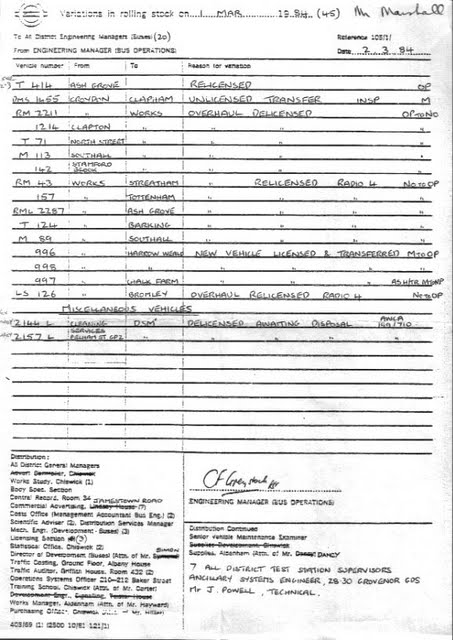 Variations in rolling stock on 1 MAR 19 84 (45) Mr Marshall
To All District Engineering Managers (Buses) (20) Reference 103/1/
From ENGINEERING MANAGER (BUS OPERATIONS) Date 2.3.84
Vehicle number From To Reason for variation
T 414 ASH GROVE RELICENSED OP
DMS 1455 CROYDON CLAPHAM UNLICENSED TRANSFER INSP M
RM 2211 " WORKS OVERHAUL DELICENSED OP TO NO
1214 CLAPTON " " " "
T 71 NORTH STREET " " " "
M 113 SOUTHALL " " " "
142 STAMFORD BROOK " " " "
RM 43 WORKS STREATHAM " RELICENSED RADIO 4 NO TO OP
157 " TOTTENHAM " " " "
RML 2287 " ASH GROVE " " " "
T 124 " BARKING " " " "
M 89 " SOUTHALL " " " "
996 " HARROW WEALD NEW VEHICLE LICENSED & TRANSFERRED M TO OP
998 " " " " " "
997 " CHALK FARM " " "
LS 126 " BROMLEY OVERHAUL RELICENSED RADIO 4 NO TO OP
MISCELLANEOUS VEHICLES
2144 L CLEANING SERVICES DSM DELICENSED AWAITING DISPOSAL
2157 L PELHAM ST GPZ " " " "
Distribution:
All District General Managers
Works Study, Chiswick (1)
Body Spec. Section
Central Record, Room 34 JAMESTOWN ROAD
Commercial Advertising, Lindsey House (7)
Costs Office (Management Accountant Bus Eng.) (2)
Scientific Adviser (2), Distribution Services Manager
Mech. Engr. (Development - Buses) (3)
Licensing Section
Statistical Office, Chiswick (2)
Director of Development (Buses) (Attn. of Mr. SIMON)
Traffic Costing, Ground Floor, Albany House
Traffic Auditor, Griffith House, Room 432 (2)
Operations Systems Officer 210–212 Baker Street
Training School, Chiswick (Attn. of Mr. Carter)
Works Manager, Aldenham (Attn. of Mr. Hayward)
Purchasing Office, Chiswick
403/69 (1) (2500 10/81 121/1)
ENGINEERING MANAGER (BUS OPERATIONS)
Distribution Continued
Senior Vehicle Maintenance Examiner
Supplies Development, Griffith
Supplies, Aldenham (Attn. of Mr. DANCY)
7 ALL DISTRICT TEST STATION SUPERVISORS
ANCILLARY SYSTEMS ENGINEER, 28-30 GROVENOR GDS
Mr J. POWELL, TECHNICAL.